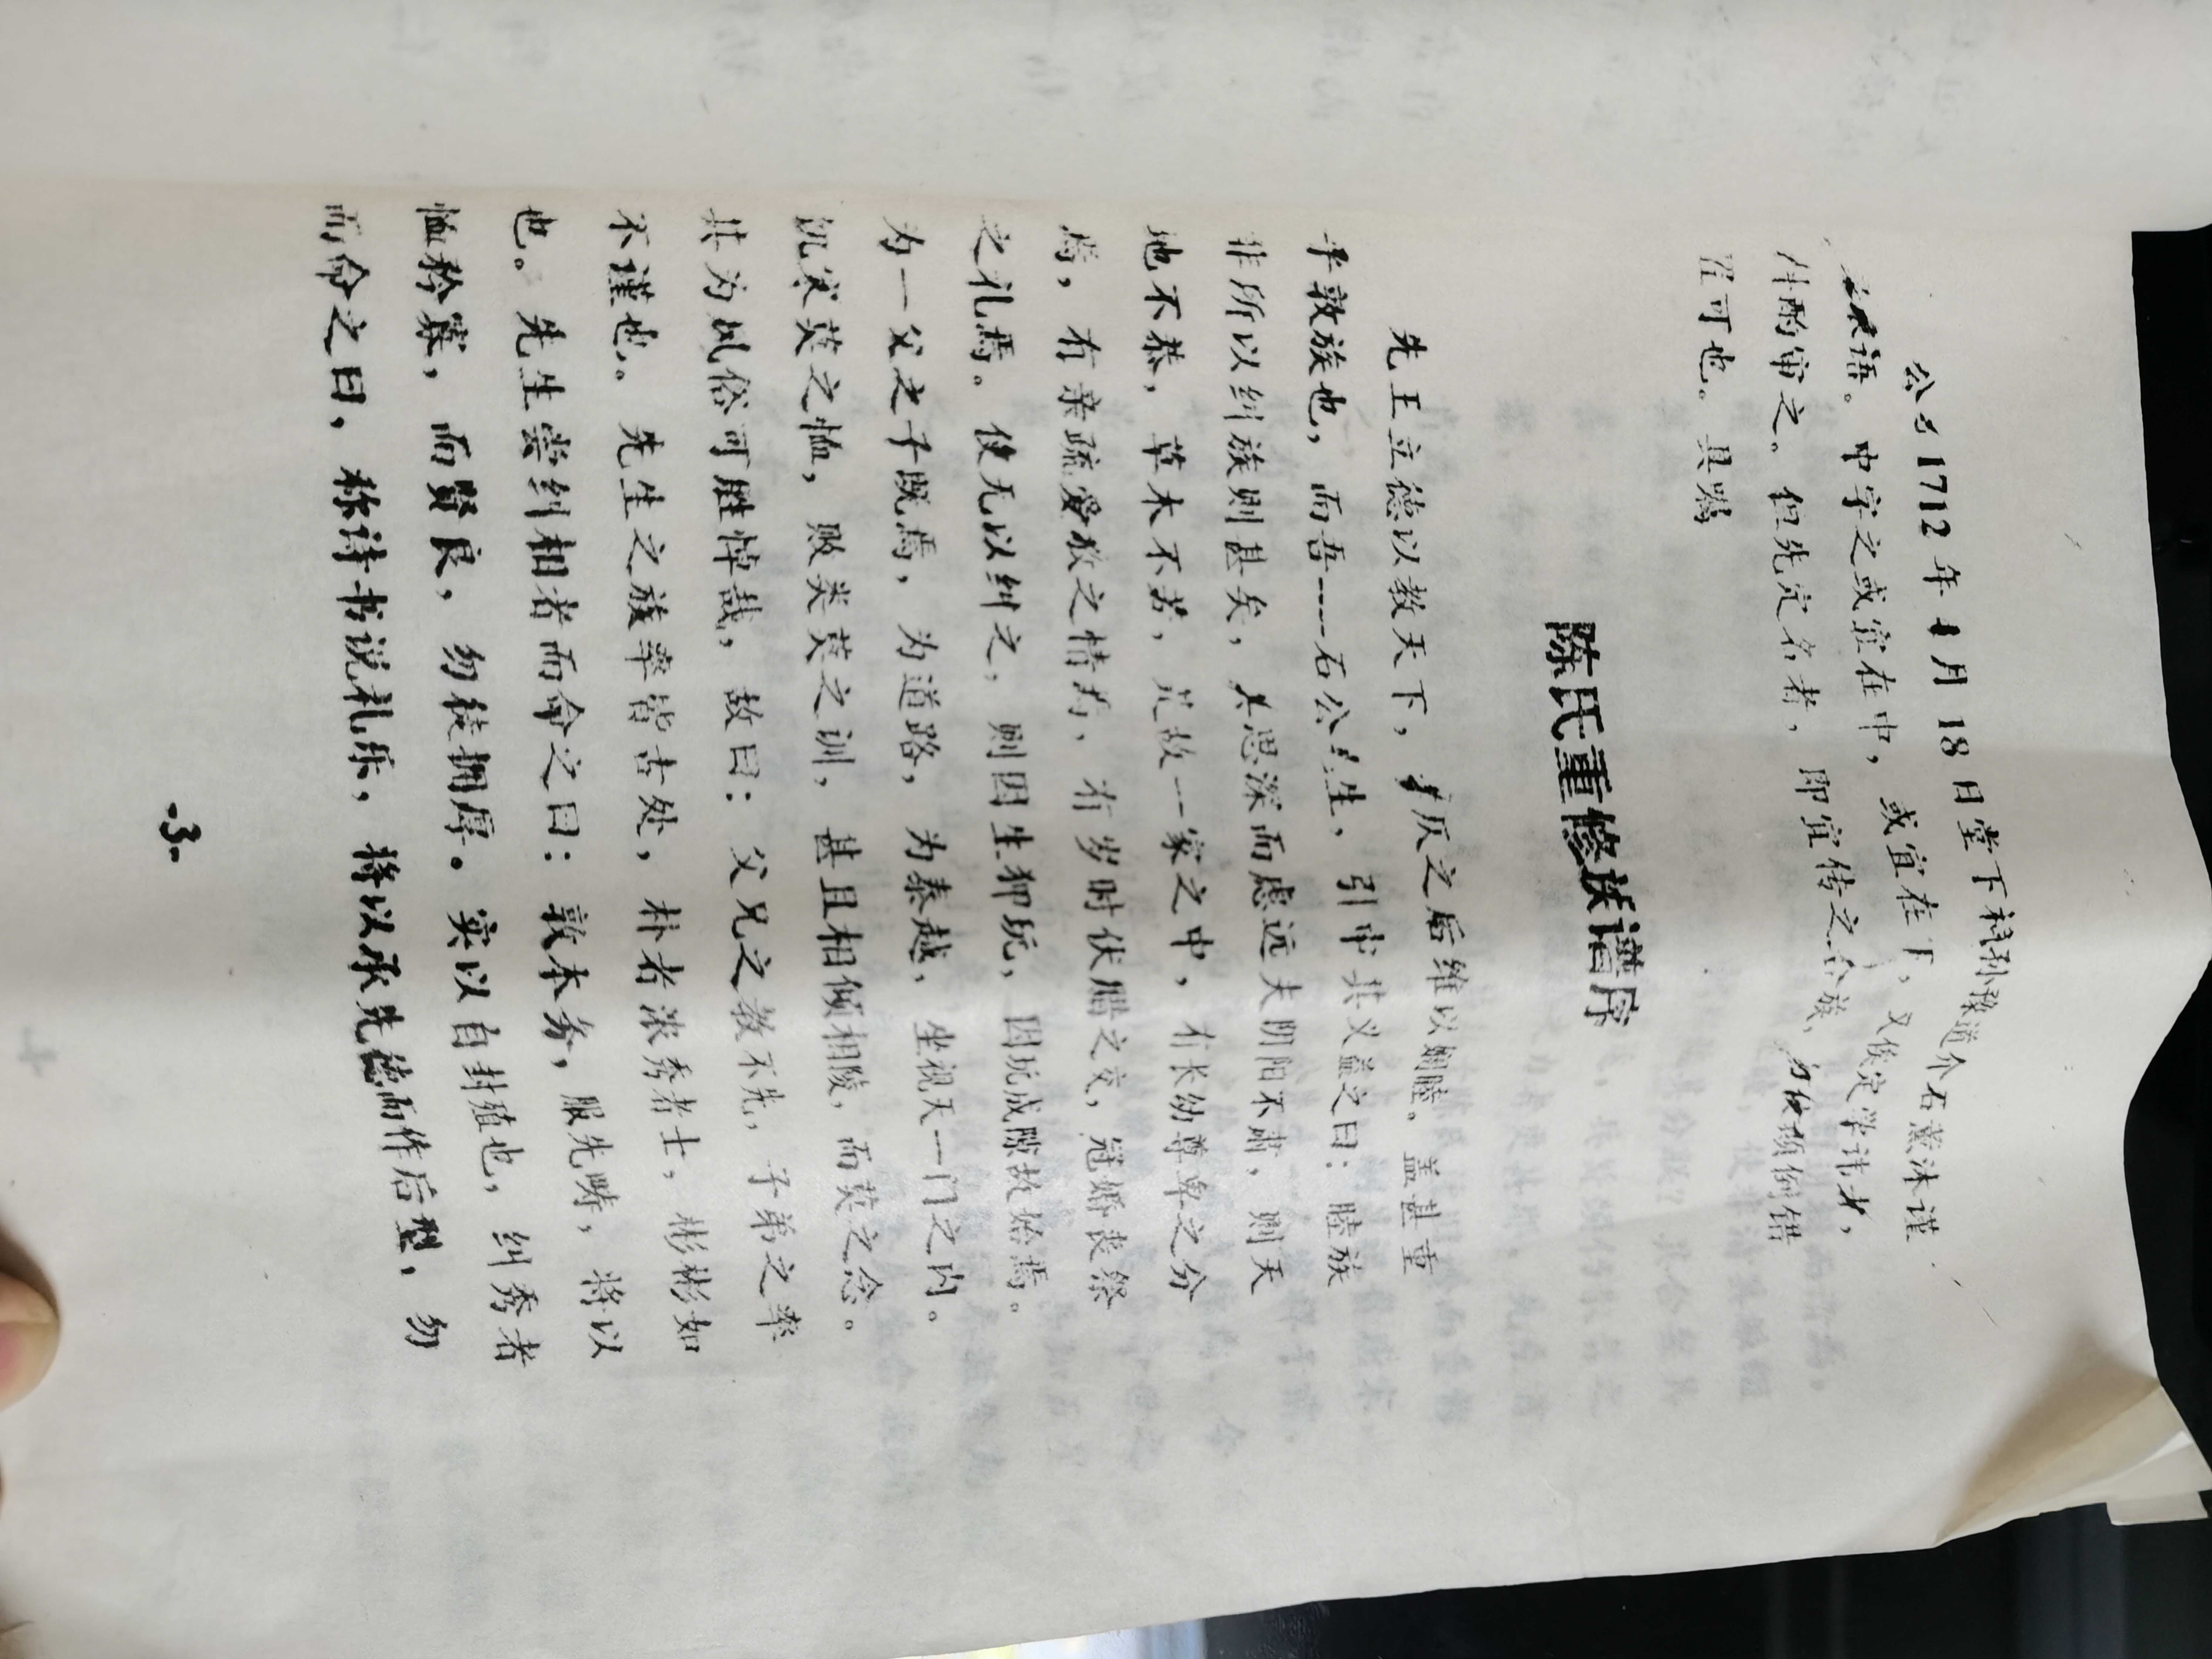 公历1712年4月18日堂下科孙豫道介石薰沐谨
跋语。中字之或宜在中，或宜在下，又俟定学计者，
斟酌审之。但先定名者，即宜传之合族，勿使颠倒错
置可也。具嘱
陈氏重修族谱序
先王立德以教天下，孝友之后维以姻睦。盖甚重
乎敦族也，而吾——石公先生，引申其义益之曰：睦族
非所以纠族则甚矣，其思深而虑远夫阴阳不肃，则天
地不恭，草木不若，是故一家之中，有长幼尊卑之分
焉，有亲疏爱敬之情焉，有岁时伏腊之交，冠婚丧祭
之礼焉。使无以纠之，则因生狎玩，因玩成隙故始焉。
为一父之子既焉，为道路，为秦越，坐视天一门之内。
饥寒莫之恤，败类莫之训，甚且相倾相陵，而莫之念。
其为风俗可胜悼哉，故曰：父兄之教不先，子弟之率
不谨也。先生之族率皆古处，朴者浓秀者士，彬彬如
也。先生尝纠相者而命之曰：敦本务，服先畴，将以
恤矜寡，而贤良，勿徒拥厚。实以自封殖也，纠秀者
而命之曰，称诗书说礼乐，将以承先德而作后型，勿
·3·